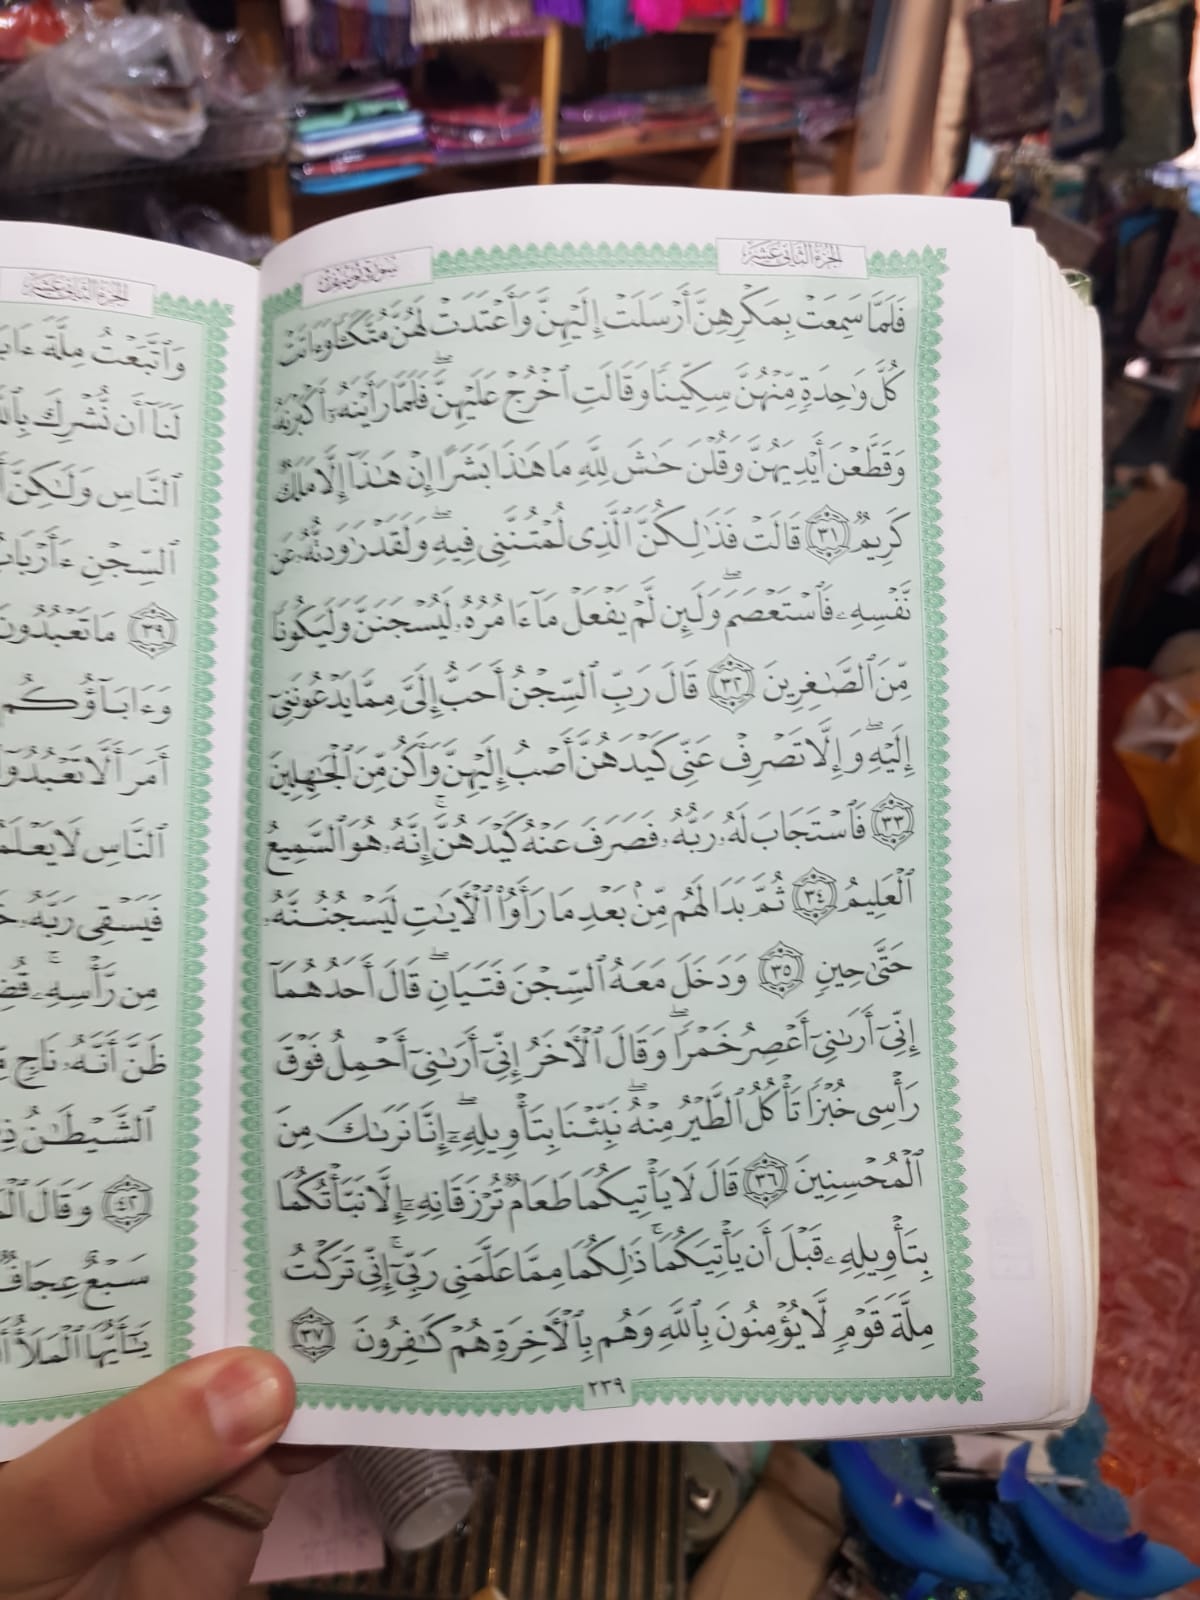 الجزء الثاني عشر
سورة يوسف
فَلَمَّا سَمِعَتْ بِمَكْرِهِنَّ أَرْسَلَتْ إِلَيْهِنَّ وَأَعْتَدَتْ لَهُنَّ مُتَّكَـًٔا وَءَاتَتْ
كُلَّ وَٰحِدَةٍ مِّنْهُنَّ سِكِّينًا وَقَالَتِ ٱخْرُجْ عَلَيْهِنَّ ۖ فَلَمَّا رَأَيْنَهُۥٓ أَكْبَرْنَهُۥ
وَقَطَّعْنَ أَيْدِيَهُنَّ وَقُلْنَ حَٰشَ لِلَّهِ مَا هَٰذَا بَشَرًا إِنْ هَٰذَآ إِلَّا مَلَكٌ
كَرِيمٌ ٣١ قَالَتْ فَذَٰلِكُنَّ ٱلَّذِى لُمْتُنَّنِى فِيهِ ۖ وَلَقَدْ رَٰوَدتُّهُۥ عَن
نَّفْسِهِۦ فَٱسْتَعْصَمَ ۖ وَلَئِن لَّمْ يَفْعَلْ مَآ ءَامُرُهُۥ لَيُسْجَنَنَّ وَلَيَكُونًا
مِّنَ ٱلصَّٰغِرِينَ ٣٢ قَالَ رَبِّ ٱلسِّجْنُ أَحَبُّ إِلَىَّ مِمَّا يَدْعُونَنِىٓ
إِلَيْهِ ۖ وَإِلَّا تَصْرِفْ عَنِّى كَيْدَهُنَّ أَصْبُ إِلَيْهِنَّ وَأَكُن مِّنَ ٱلْجَٰهِلِينَ
٣٣ فَٱسْتَجَابَ لَهُۥ رَبُّهُۥ فَصَرَفَ عَنْهُ كَيْدَهُنَّ ۚ إِنَّهُۥ هُوَ ٱلسَّمِيعُ
ٱلْعَلِيمُ ٣٤ ثُمَّ بَدَا لَهُم مِّنۢ بَعْدِ مَا رَأَوُا۟ ٱلْـَٔايَٰتِ لَيَسْجُنُنَّهُۥ
حَتَّىٰ حِينٍ ٣٥ وَدَخَلَ مَعَهُ ٱلسِّجْنَ فَتَيَانِ ۖ قَالَ أَحَدُهُمَآ
إِنِّىٓ أَرَىٰنِىٓ أَعْصِرُ خَمْرًا ۖ وَقَالَ ٱلْـَٔاخَرُ إِنِّىٓ أَرَىٰنِىٓ أَحْمِلُ فَوْقَ
رَأْسِى خُبْزًا تَأْكُلُ ٱلطَّيْرُ مِنْهُ ۖ نَبِّئْنَا بِتَأْوِيلِهِۦٓ ۖ إِنَّا نَرَىٰكَ مِنَ
ٱلْمُحْسِنِينَ ٣٦ قَالَ لَا يَأْتِيكُمَا طَعَامٌ تُرْزَقَانِهِۦٓ إِلَّا نَبَّأْتُكُمَا
بِتَأْوِيلِهِۦ قَبْلَ أَن يَأْتِيَكُمَا ۚ ذَٰلِكُمَا مِمَّا عَلَّمَنِى رَبِّىٓ ۚ إِنِّى تَرَكْتُ
مِلَّةَ قَوْمٍ لَّا يُؤْمِنُونَ بِٱللَّهِ وَهُم بِٱلْـَٔاخِرَةِ هُمْ كَٰفِرُونَ ٣٧
٢٣٩
الجزء الثاني عشر
وَٱتَّبَعْتُ مِلَّةَ
لَنَآ أَن نُّشْرِكَ
ٱلنَّاسِ وَلَٰكِنَّ
ٱلسِّجْنِ
٣٩ مَا تَعْبُدُونَ
وَءَابَآؤُكُم
أَمَرَ أَلَّا تَعْبُدُوٓا۟
ٱلنَّاسِ لَا
فَيَسْقِى رَبَّهُۥ
مِن رَّأْسِهِۦ ۚ
ظَنَّ أَنَّهُۥ نَاجٍ
ٱلشَّيْطَٰنُ
٤٢ وَقَالَ
سَبْعٌ عِجَافٌ
يَٰٓأَيُّهَا ٱلْمَلَأُ